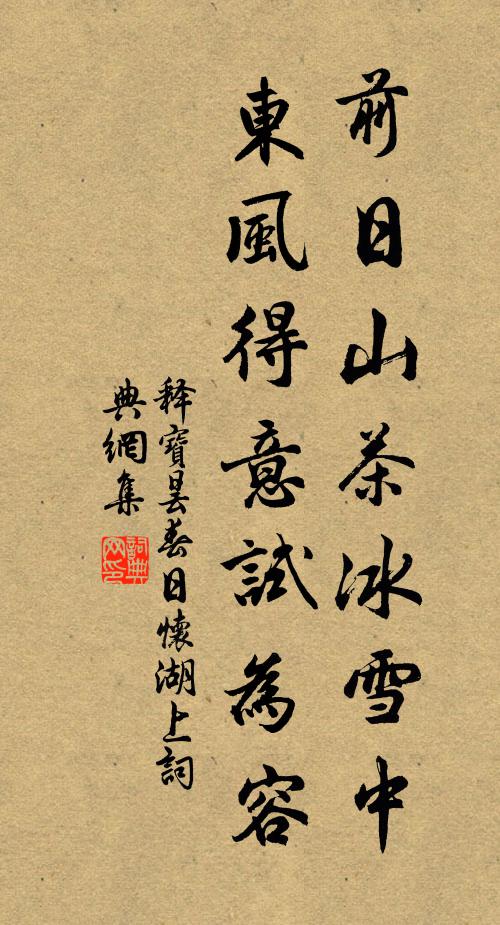 前日山茶冰雪中
東風得意試為容
釋寶曇春日懷湖上詞
典網集
詞典
网印